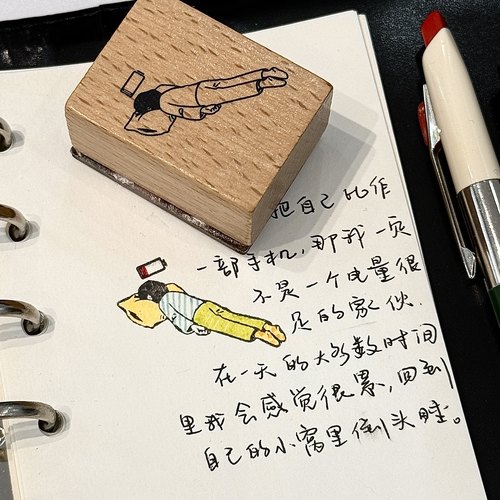 把自己比作
一部手机，那我一定
不是一个电量很
足的家伙．
在一天的大多数时间
里我会感觉很累，回到
自己的小窝里倒头睡。